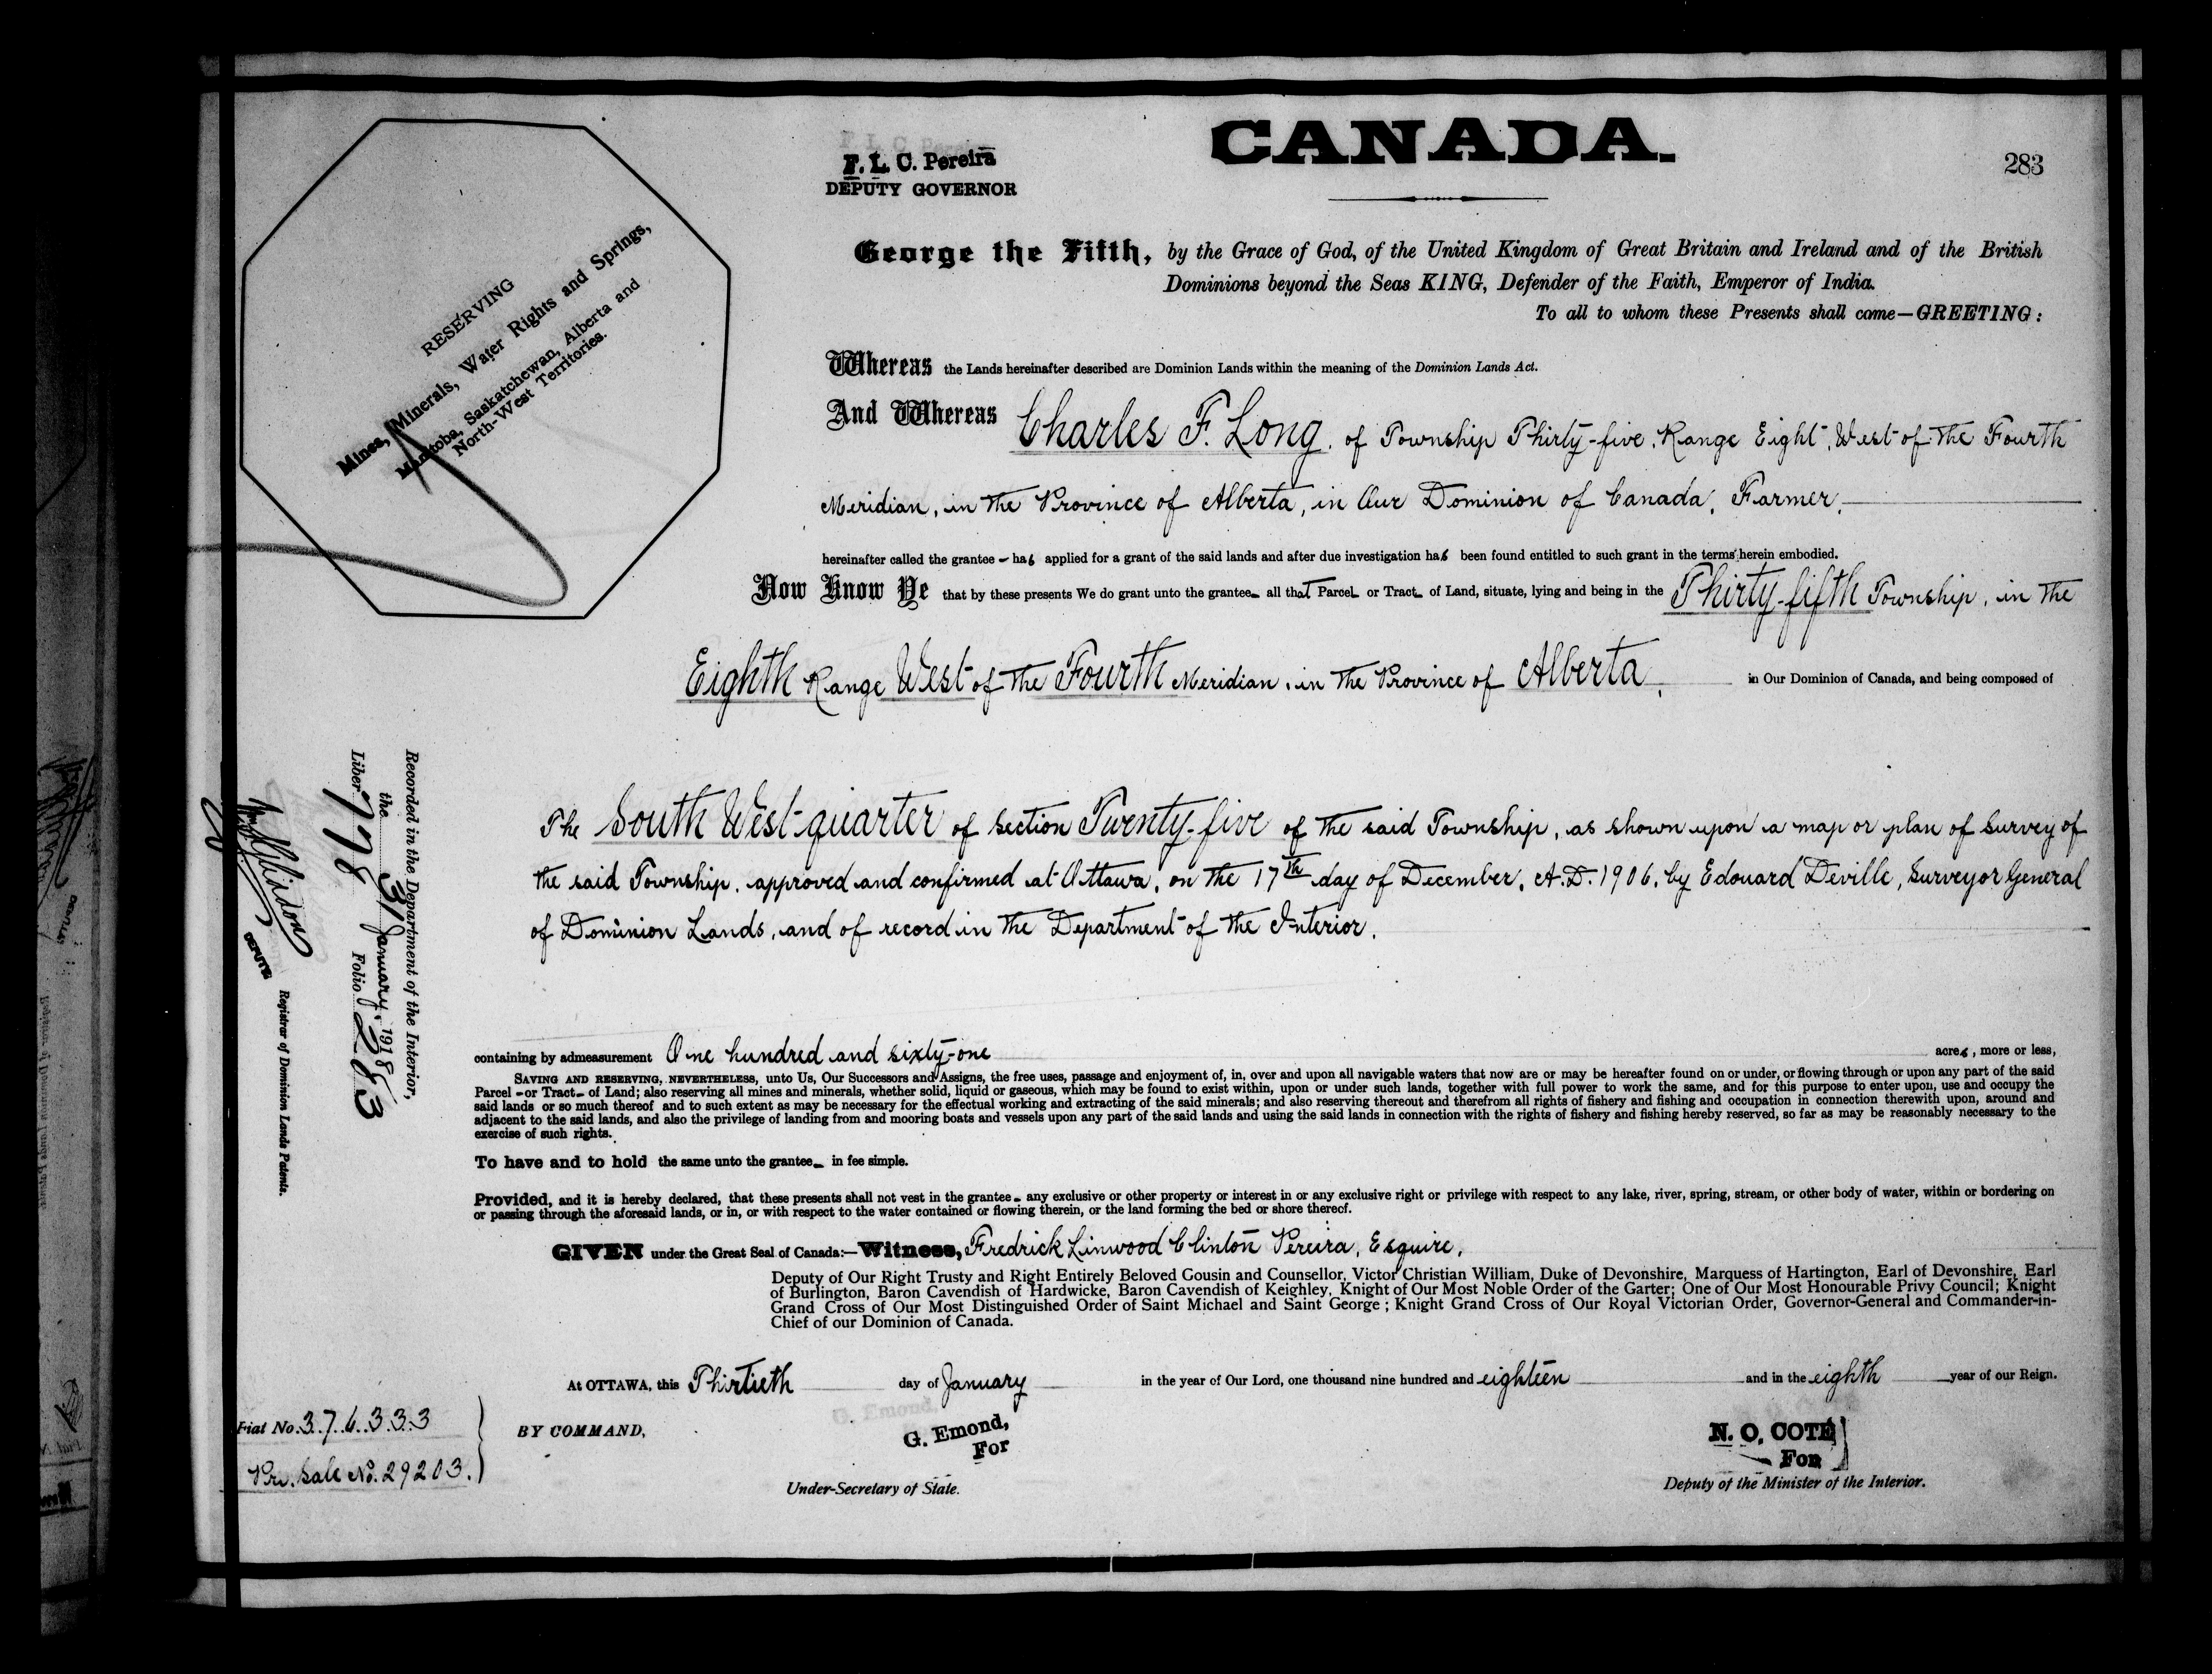 CANADA.
283
F. L. C. Pereira
DEPUTY GOVERNOR
RESERVING
Mines, Minerals, Water Rights and Springs,
Manitoba, Saskatchewan, Alberta and
North-West Territories.
George the Fifth, by the Grace of God, of the United Kingdom of Great Britain and Ireland and of the British
Dominions beyond the Seas KING, Defender of the Faith, Emperor of India.
To all to whom these Presents shall come—GREETING:
Whereas the Lands hereinafter described are Dominion Lands within the meaning of the Dominion Lands Act.
And Whereas Charles F. Long, of Township Thirty-five, Range Eight, West of the Fourth
Meridian, in the Province of Alberta, in Our Dominion of Canada, Farmer,
hereinafter called the grantee – has applied for a grant of the said lands and after due investigation has been found entitled to such grant in the terms herein embodied.
Now Know Ye that by these presents We do grant unto the grantee– all that Parcel or Tract– of Land, situate, lying and being in the Thirty-fifth Township, in the
Eighth Range West of the Fourth Meridian, in the Province of Alberta, in Our Dominion of Canada, and being composed of
The South West quarter of section Twenty-five of the said Township, as shown upon a map or plan of survey of
the said Township, approved and confirmed at Ottawa, on the 17th day of December, A.D. 1906, by Edouard Deville, Surveyor General
of Dominion Lands, and of record in the Department of the Interior.
containing by admeasurement One hundred and sixty-one acres, more or less,
SAVING AND RESERVING, NEVERTHELESS, unto Us, Our Successors and Assigns, the free uses, passage and enjoyment of, in, over and upon all navigable waters that now are or may be hereafter found on or under, or flowing through or upon any part of the said
Parcel – or Tract– of Land; also reserving all mines and minerals, whether solid, liquid or gaseous, which may be found to exist within, upon or under such lands, together with full power to work the same, and for this purpose to enter upon, use and occupy the
said lands or so much thereof and to such extent as may be necessary for the effectual working and extracting of the said minerals; and also reserving thereout and therefrom all rights of fishery and fishing and occupation in connection therewith upon, around and
adjacent to the said lands, and also the privilege of landing from and mooring boats and vessels upon any part of the said lands and using the said lands in connection with the rights of fishery and fishing hereby reserved, so far as may be reasonably necessary to the
exercise of such rights.
To have and to hold the same unto the grantee– in fee simple.
Provided, and it is hereby declared, that these presents shall not vest in the grantee– any exclusive or other property or interest in or any exclusive right or privilege with respect to any lake, river, spring, stream, or other body of water, within or bordering on
or passing through the aforesaid lands, or in, or with respect to the water contained or flowing therein, or the land forming the bed or shore thereof.
GIVEN under the Great Seal of Canada:—Witness, Fredrick Linwood Clinton Pereira, Esquire,
Deputy of Our Right Trusty and Right Entirely Beloved Cousin and Counsellor, Victor Christian William, Duke of Devonshire, Marquess of Hartington, Earl of Devonshire, Earl
of Burlington, Baron Cavendish of Hardwicke, Baron Cavendish of Keighley, Knight of Our Most Noble Order of the Garter; One of Our Most Honourable Privy Council; Knight
Grand Cross of Our Most Distinguished Order of Saint Michael and Saint George; Knight Grand Cross of Our Royal Victorian Order, Governor-General and Commander-in-
Chief of our Dominion of Canada.
At OTTAWA, this Thirtieth day of January in the year of Our Lord, one thousand nine hundred and eighteen and in the eighth year of our Reign.
BY COMMAND,
G. Emond,
For
Under-Secretary of State.
N. O. COTE
For
Deputy of the Minister of the Interior.
Recorded in the Department of the Interior,
the 31 January, 1918
Liber 778 Folio 283
DEPUTY
Registrar of Dominion Lands Patents.
Fiat No. 376333
Pre. Sale No. 29203.